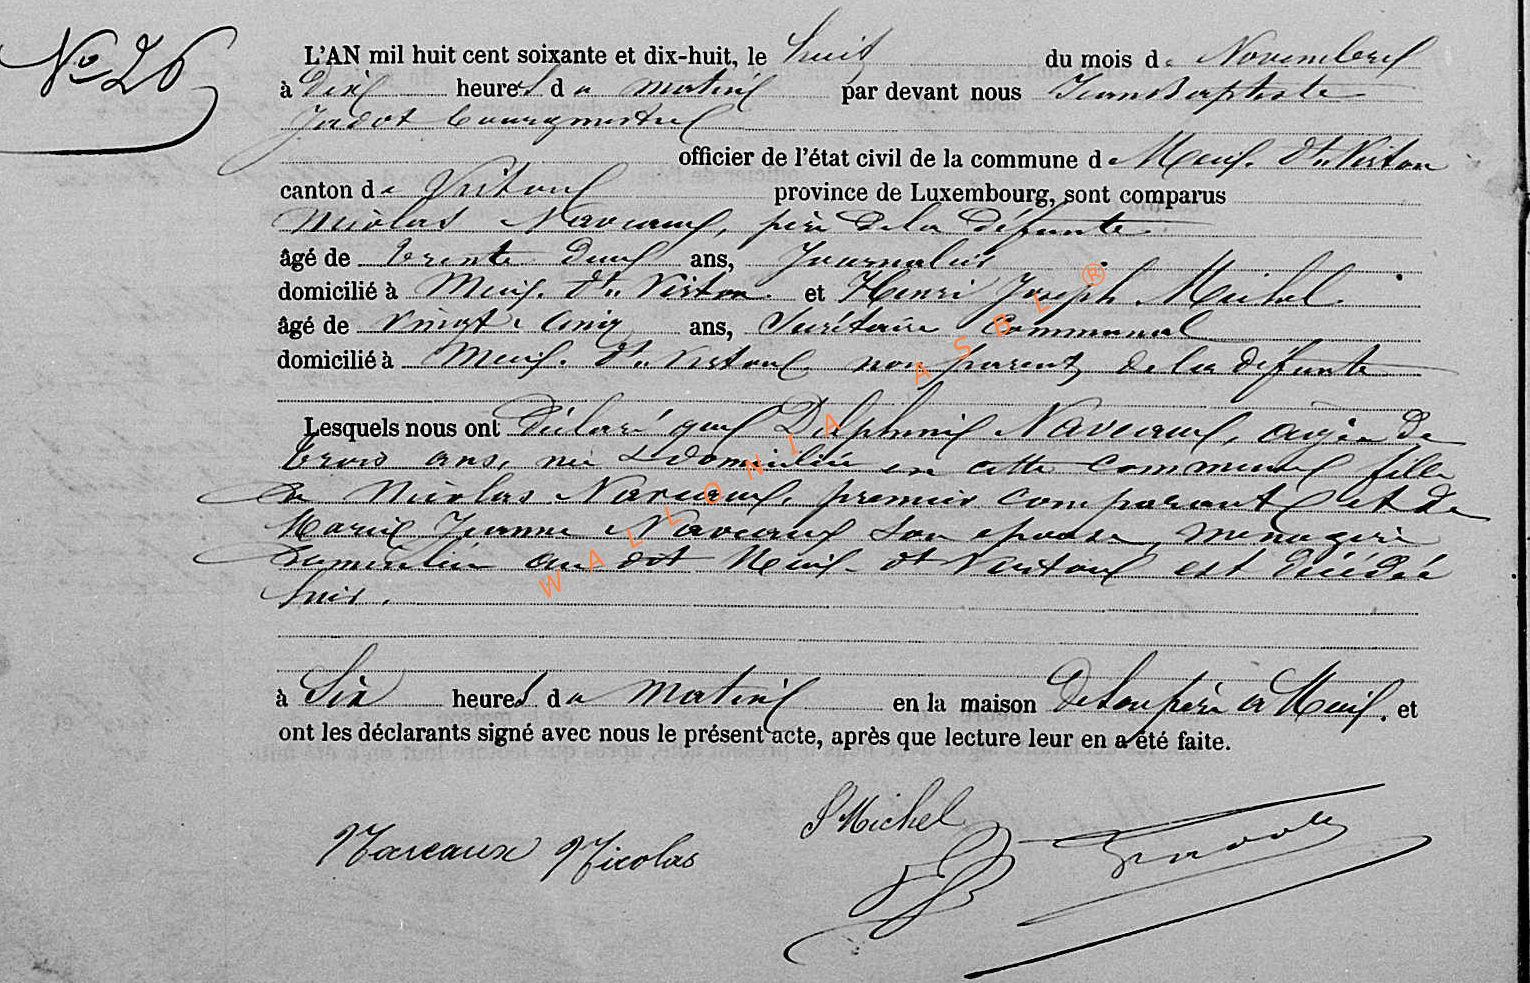 No 26
L'AN mil huit cent soixante et dix-huit, le huit du mois de Novembre
à dix heures du matin par devant nous Jean Baptiste
Jadot bourgmestre
officier de l'état civil de la commune de Meix dt Virton
canton de Virton province de Luxembourg, sont comparus
Nicolas Naveaux, père de la défunte
âgé de trente deux ans, Journalier
domicilié à Meix dt Virton et Henri Joseph Michel
âgé de vingt cinq ans, Secrétaire Communal
domicilié à Meix dt Virton non parent de la défunte
Lesquels nous ont déclaré que Delphine Naveaux, agée de
trois ans, née & domiciliée en cette commune fille
de Nicolas Naveaux, premier comparant et de
Marie Jeanne Naveaux son epouse, menagère
domiciliée au dit Meix dt Virton est décédée
hier.
à Six heures du matin en la maison de son père à Meix. et
ont les déclarants signé avec nous le présent acte, après que lecture leur en a été faite.
Naveaux Nicolas
Michel
Jadot
WALLONIA ASBL ®